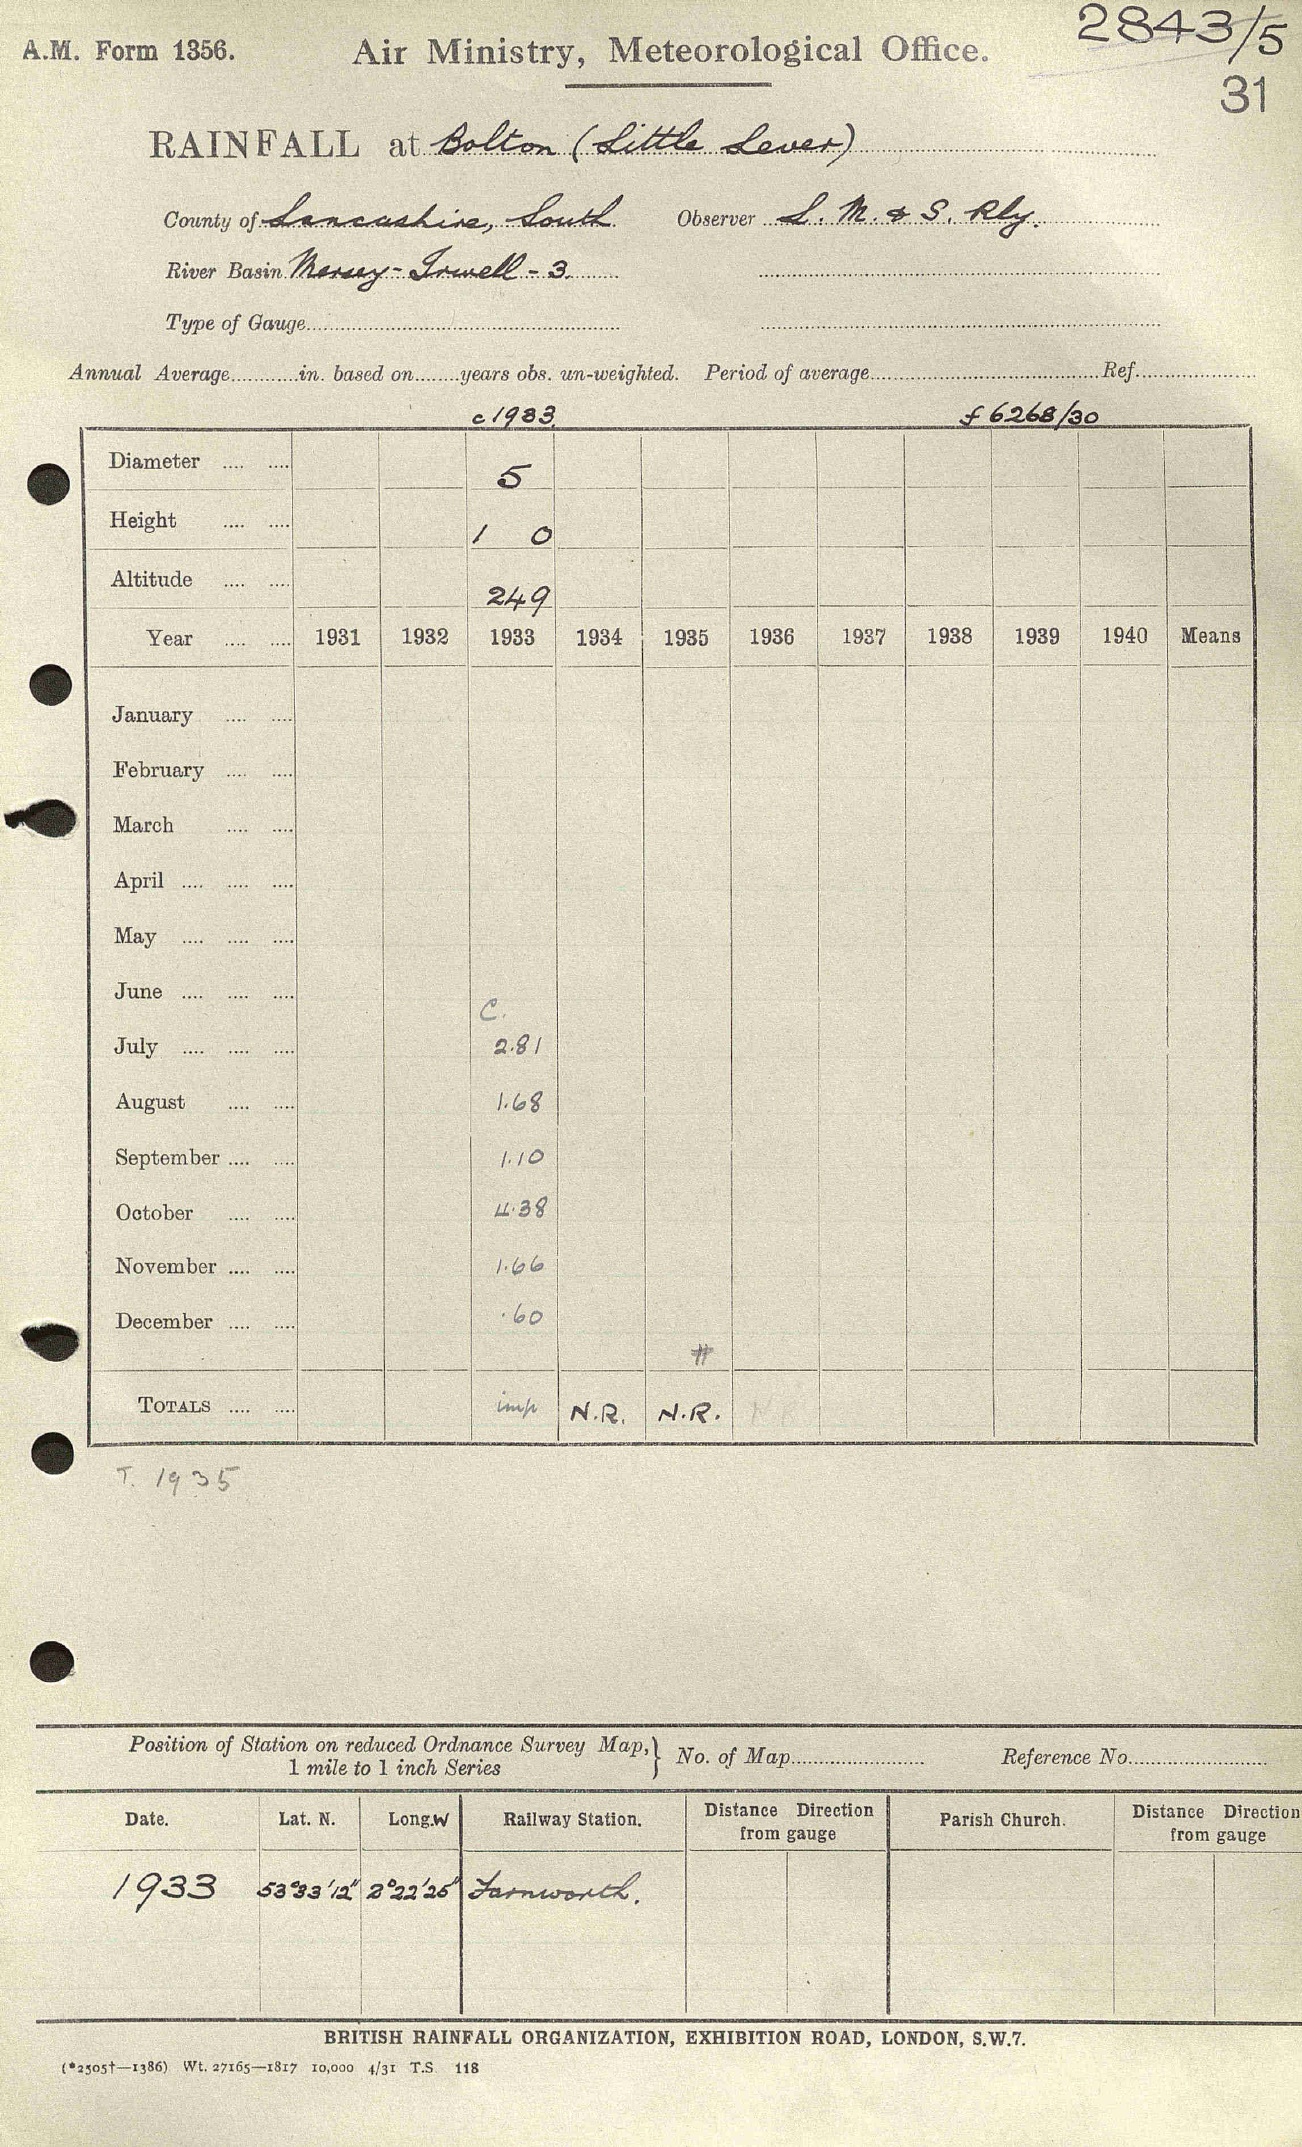 2843/5
A.M. Form 1356. Air Ministry, Meteorological Office.
31
RAINFALL at Bolton (Little Lever)
County of Lancashire, South Observer L. M. & S. Rly.
River Basin Mersey - Irwell - 3
Type of Gauge
Annual Average in. based on years obs. un-weighted. Period of average Ref.
c1933 f 6268/30
Diameter 5
Height 1 0
Altitude 249
Year 1931 1932 1933 1934 1935 1936 1937 1938 1939 1940 Means
January
February
March
April
May
June
C.
July 2.81
August 1.68
September 1.10
October 4.38
November 1.66
December .60
#
TOTALS imp N.R. N.R.
T. 1935
Position of Station on reduced Ordnance Survey Map,} No. of Map Reference No.
1 mile to 1 inch Series
Date. Lat. N. Long.W Railway Station. Distance Direction from gauge Parish Church. Distance Direction from gauge
1933 53°33'12" 2°22'25" Farnworth.
BRITISH RAINFALL ORGANIZATION, EXHIBITION ROAD, LONDON, S.W.7.
(*2505†—1386) Wt. 27165—1817 10,000 4/31 T.S. 118